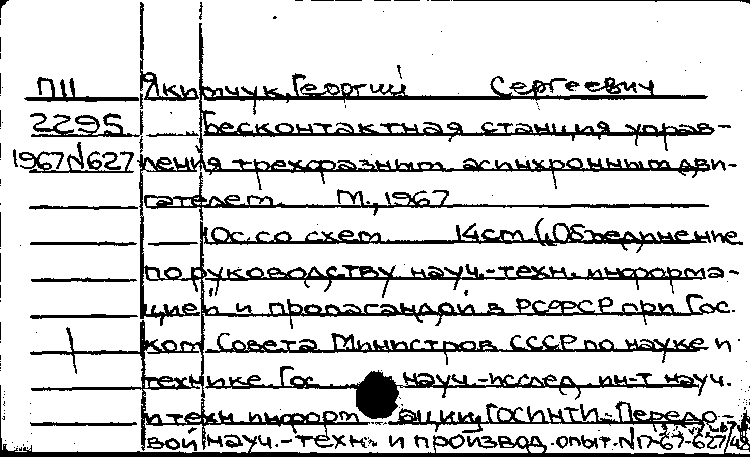 П11 Якимчук, Георгий Сергеевич
2295 Бесконтактная станция управ-
1967 N627 ления трехфазным асинхронным дви-
гателем. М., 1967
10с. со схем. 14см. (Объединение
по руководству науч.-техн. информа-
цией и пропагандой в РСФСР при Гос.
ком. Совета Министров СССР по науке и
технике. Гос. науч.-исслед. ин-т науч.
и техн. информации. ГОСИНТИ. Передо-
вой науч.-техн. и производ. опыт. №17-67-627/48